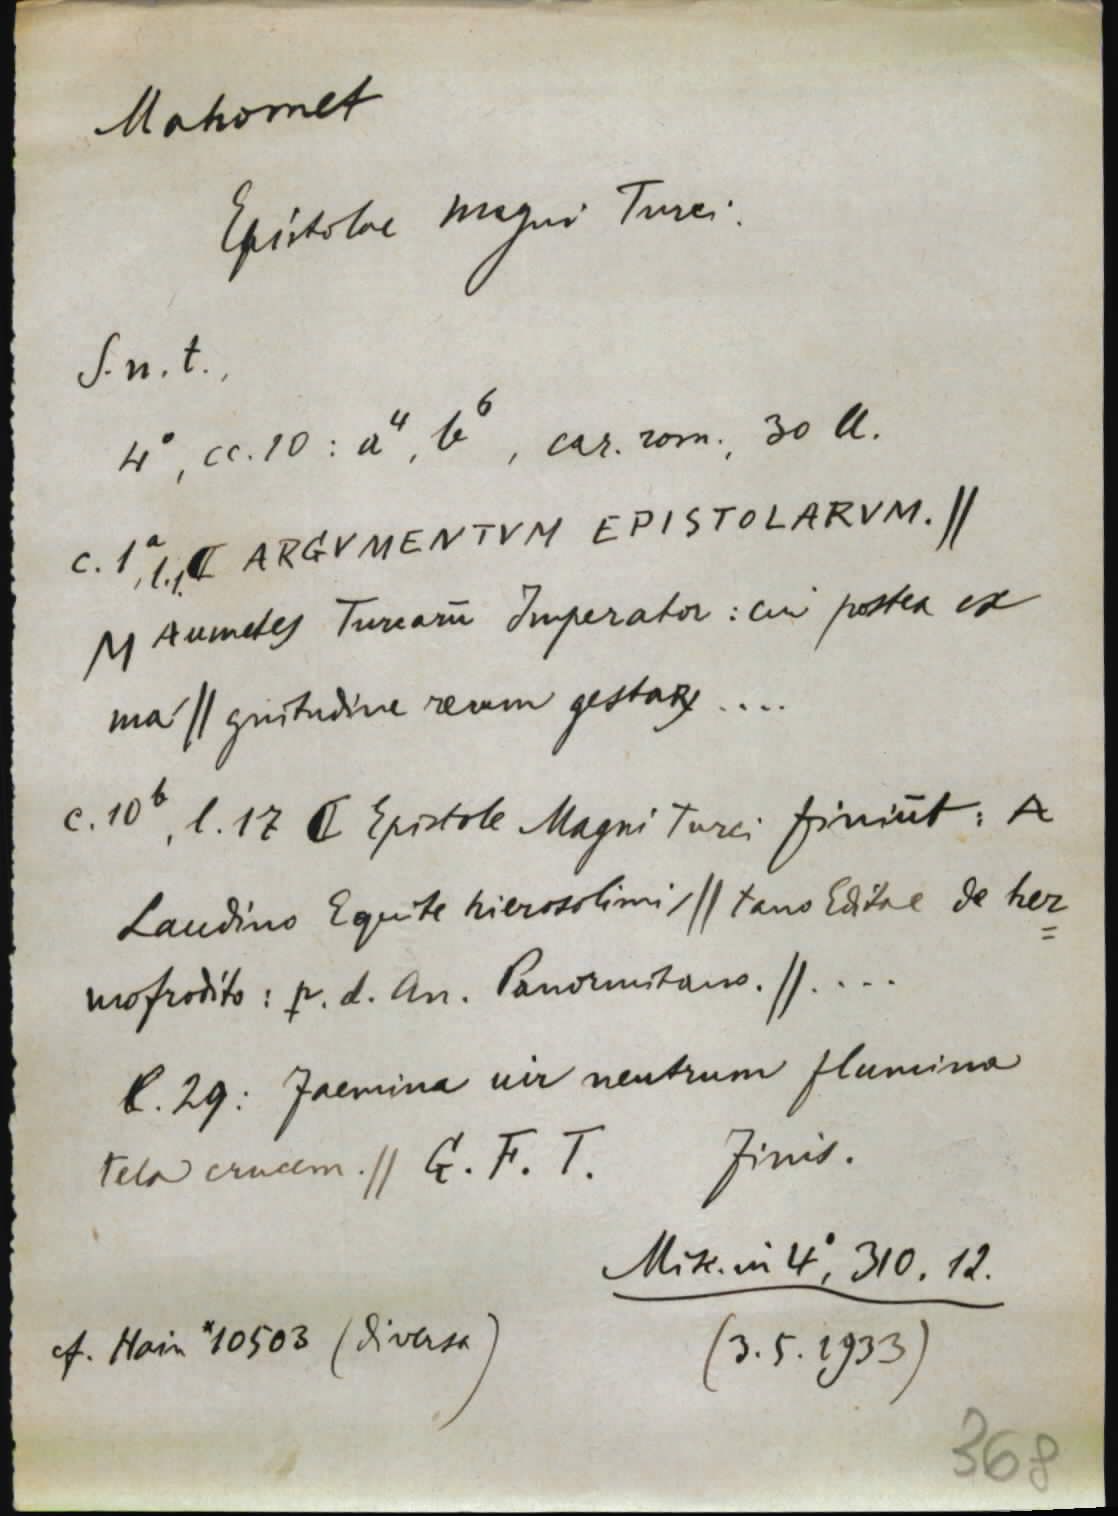 Mahomet
Epistolae magni Turci.
S. n. t.,
4°, cc. 10 : a⁴, b⁶, car. rom., 30 ll.
c. 1ᵃ, l.1. ⁋ ARGVMENTVM EPISTOLARVM. ||
MAumetes Turcarū Imperator : cui postea ex
ma || gnitudine rerum gestaꝝ ....
c. 10ᵇ, l. 17 ⁋ Epistole Magni Turci finiūt : A
Laudino Equite hierosolimi / || tano Editae de her
=
mofrodito : p. d. An. Panormitano. || ....
l. 29 : Faemina uir neutrum flumina
tela crucem. || G. F. T. Finis.
Misc. in 4°, 310. 12.
cf. Hain *10503 (diversa) (3. 5. 1933)
368